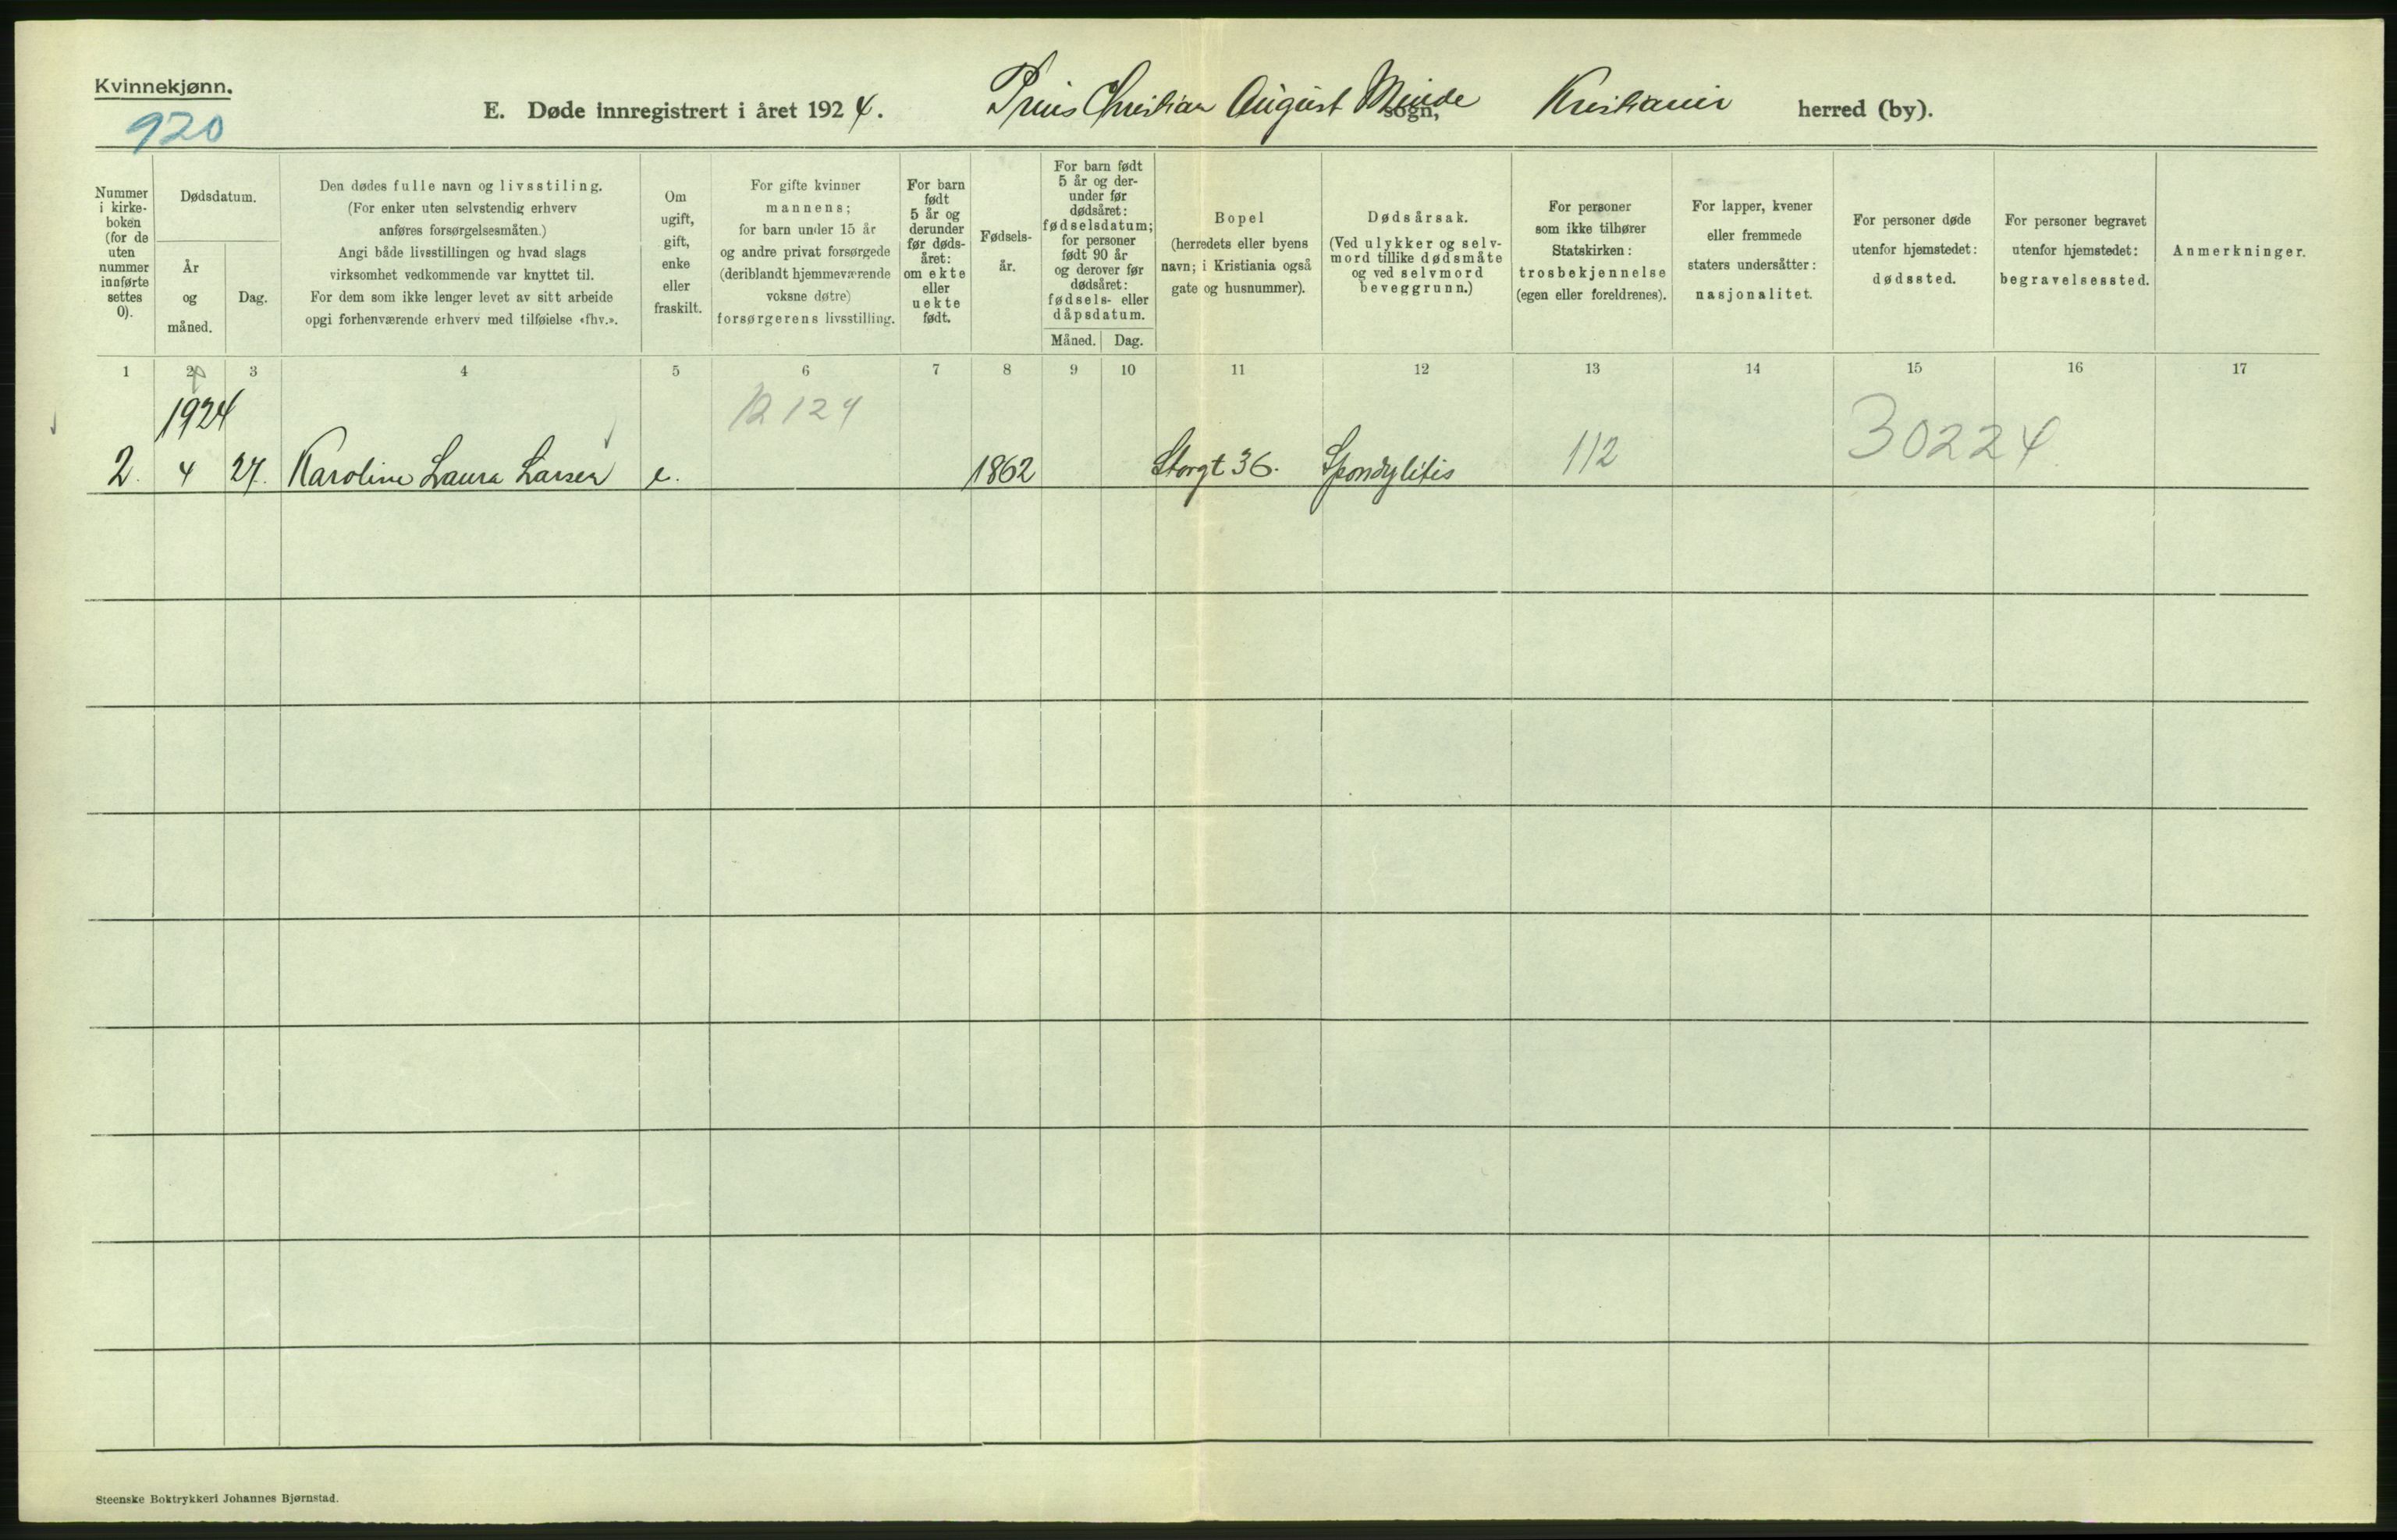 Kvinnekjønn.
920
E. Døde innregistrert i året 1924. Prins Christian August Minde sogn, Kristiania herred (by).
Nummer i kirke-boken (for de uten nummer innførte settes 0).
Dødsdatum.
År og måned.
Dag.
Den dødes fulle navn og livsstiling.
(For enker uten selvstendig erhverv
anføres forsørgelsesmåten.)
Angi både livsstillingen og hvad slags
virksomhet vedkommende var knyttet til.
For dem som ikke lenger levet av sitt arbeide
opgi forhenværende erhverv med tilføielse «fhv.».
Om
ugift,
gift,
enke
eller
fraskilt.
For gifte kvinner
mannens;
for barn under 15 år
og andre privat forsørgede
(deriblandt hjemmeværende
voksne døtre)
forsørgerens livsstilling.
For barn
født
5 år og
derunder
før døds-
året:
om ekte
eller
uekte
født.
Fødsels-
år.
For barn født
5 år og der-
under før
dødsåret:
fødselsdatum;
for personer
født 90 år
og derover før
dødsåret:
fødsels- eller
dåpsdatum.
Måned. Dag.
Bopel
(herredets eller byens
navn; i Kristiania også
gate og husnummer).
Dødsårsak.
(Ved ulykker og selv-
mord tillike dødsmåte
og ved selvmord
beveggrunn.)
For personer
som ikke tilhører
Statskirken:
trosbekjennelse
(egen eller foreldrenes).
For lapper, kvener
eller fremmede
staters undersåtter:
nasjonalitet.
For personer døde
utenfor hjemstedet:
dødssted.
For personer begravet
utenfor hjemstedet:
begravelsessted.
Anmerkninger.
1 2 3 4 5 6 7 8 9 10 11 12 13 14 15 16 17
1924 12124 30224
2. 4 27. Karoline Laura Larsen e. 1862 Storgt 36. Spondylitis 112
Steenske Boktrykkeri Johannes Bjørnstad.